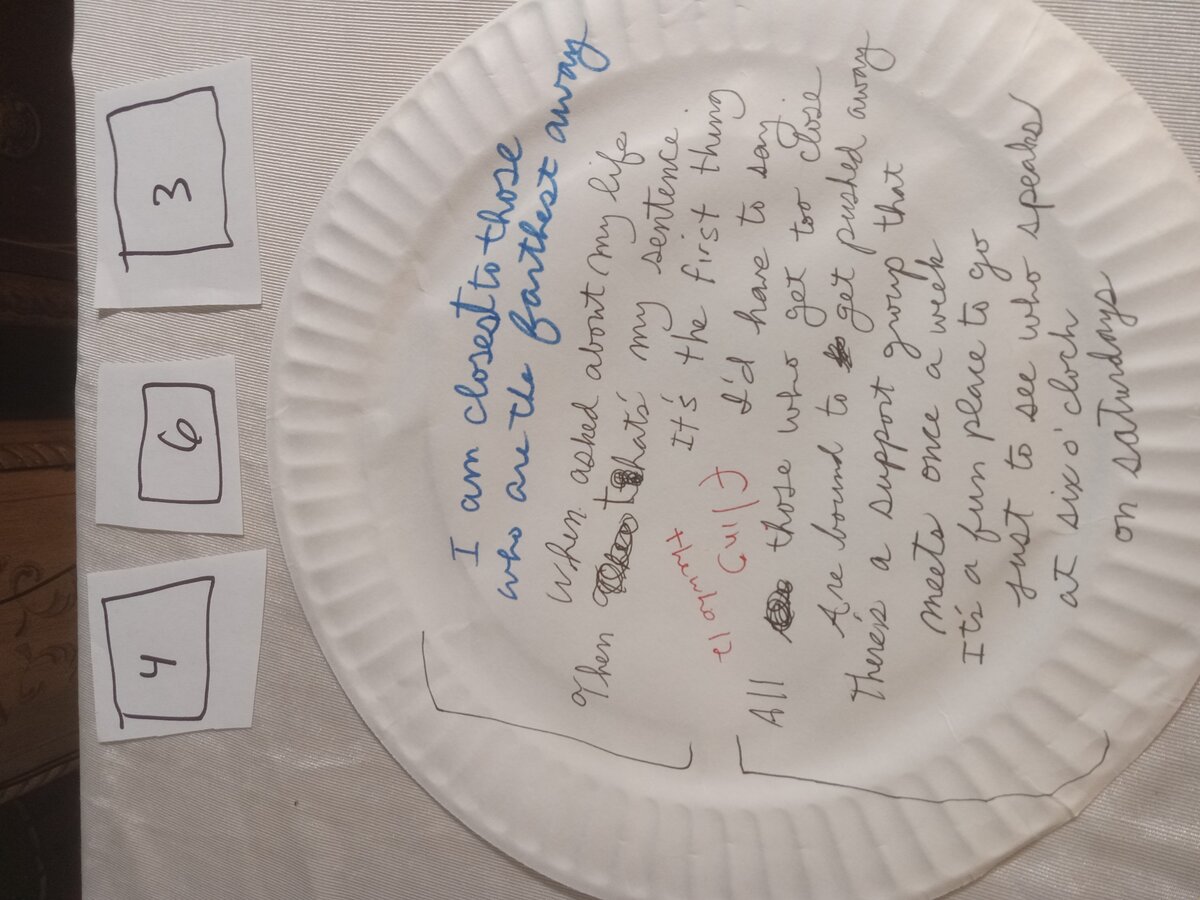 4
6
3
I am closest to those
who are the farthest away
When asked about my life
Then thats' my sentence
It's the first thing
I'd have to say.
elopment
Guilt
All those who get too close
Are bound to get pushed away
There's a support group that
meets once a week
It's a fun place to go
Just to see who speaks
at six o'clock
on saturdays